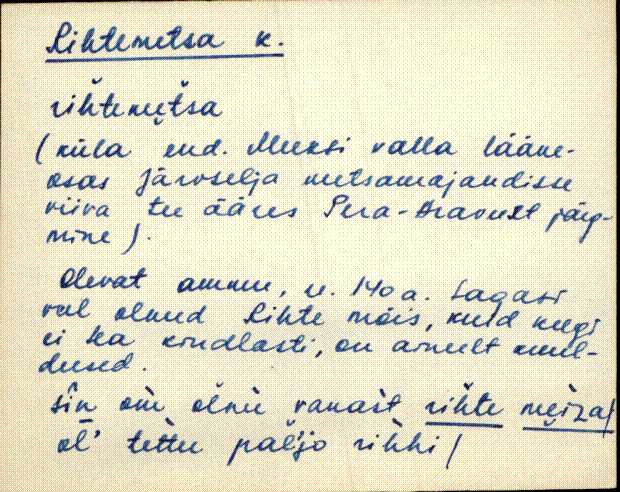 Rihtemetsa k.
rihtemetsa
(küla end. Meeksi valla lääne-
osas Järvselja metsamajandisse
viiva tee ääres Pera-Aravust järg-
mine).
Olevat ammu, u. 140 a. tagasi
veel olnud Rihte mõis, kuid keegi
ei tea kindlasti, on ainult kuul-
dused.
sin om olnu vanast rihte meiza/
ol' tettu pal'jo rihhi/